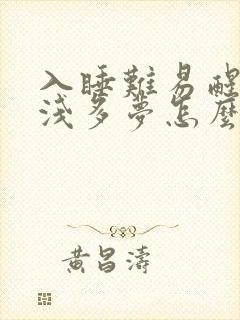 入睡難易醒
淺多夢怎麼
黃昌濤